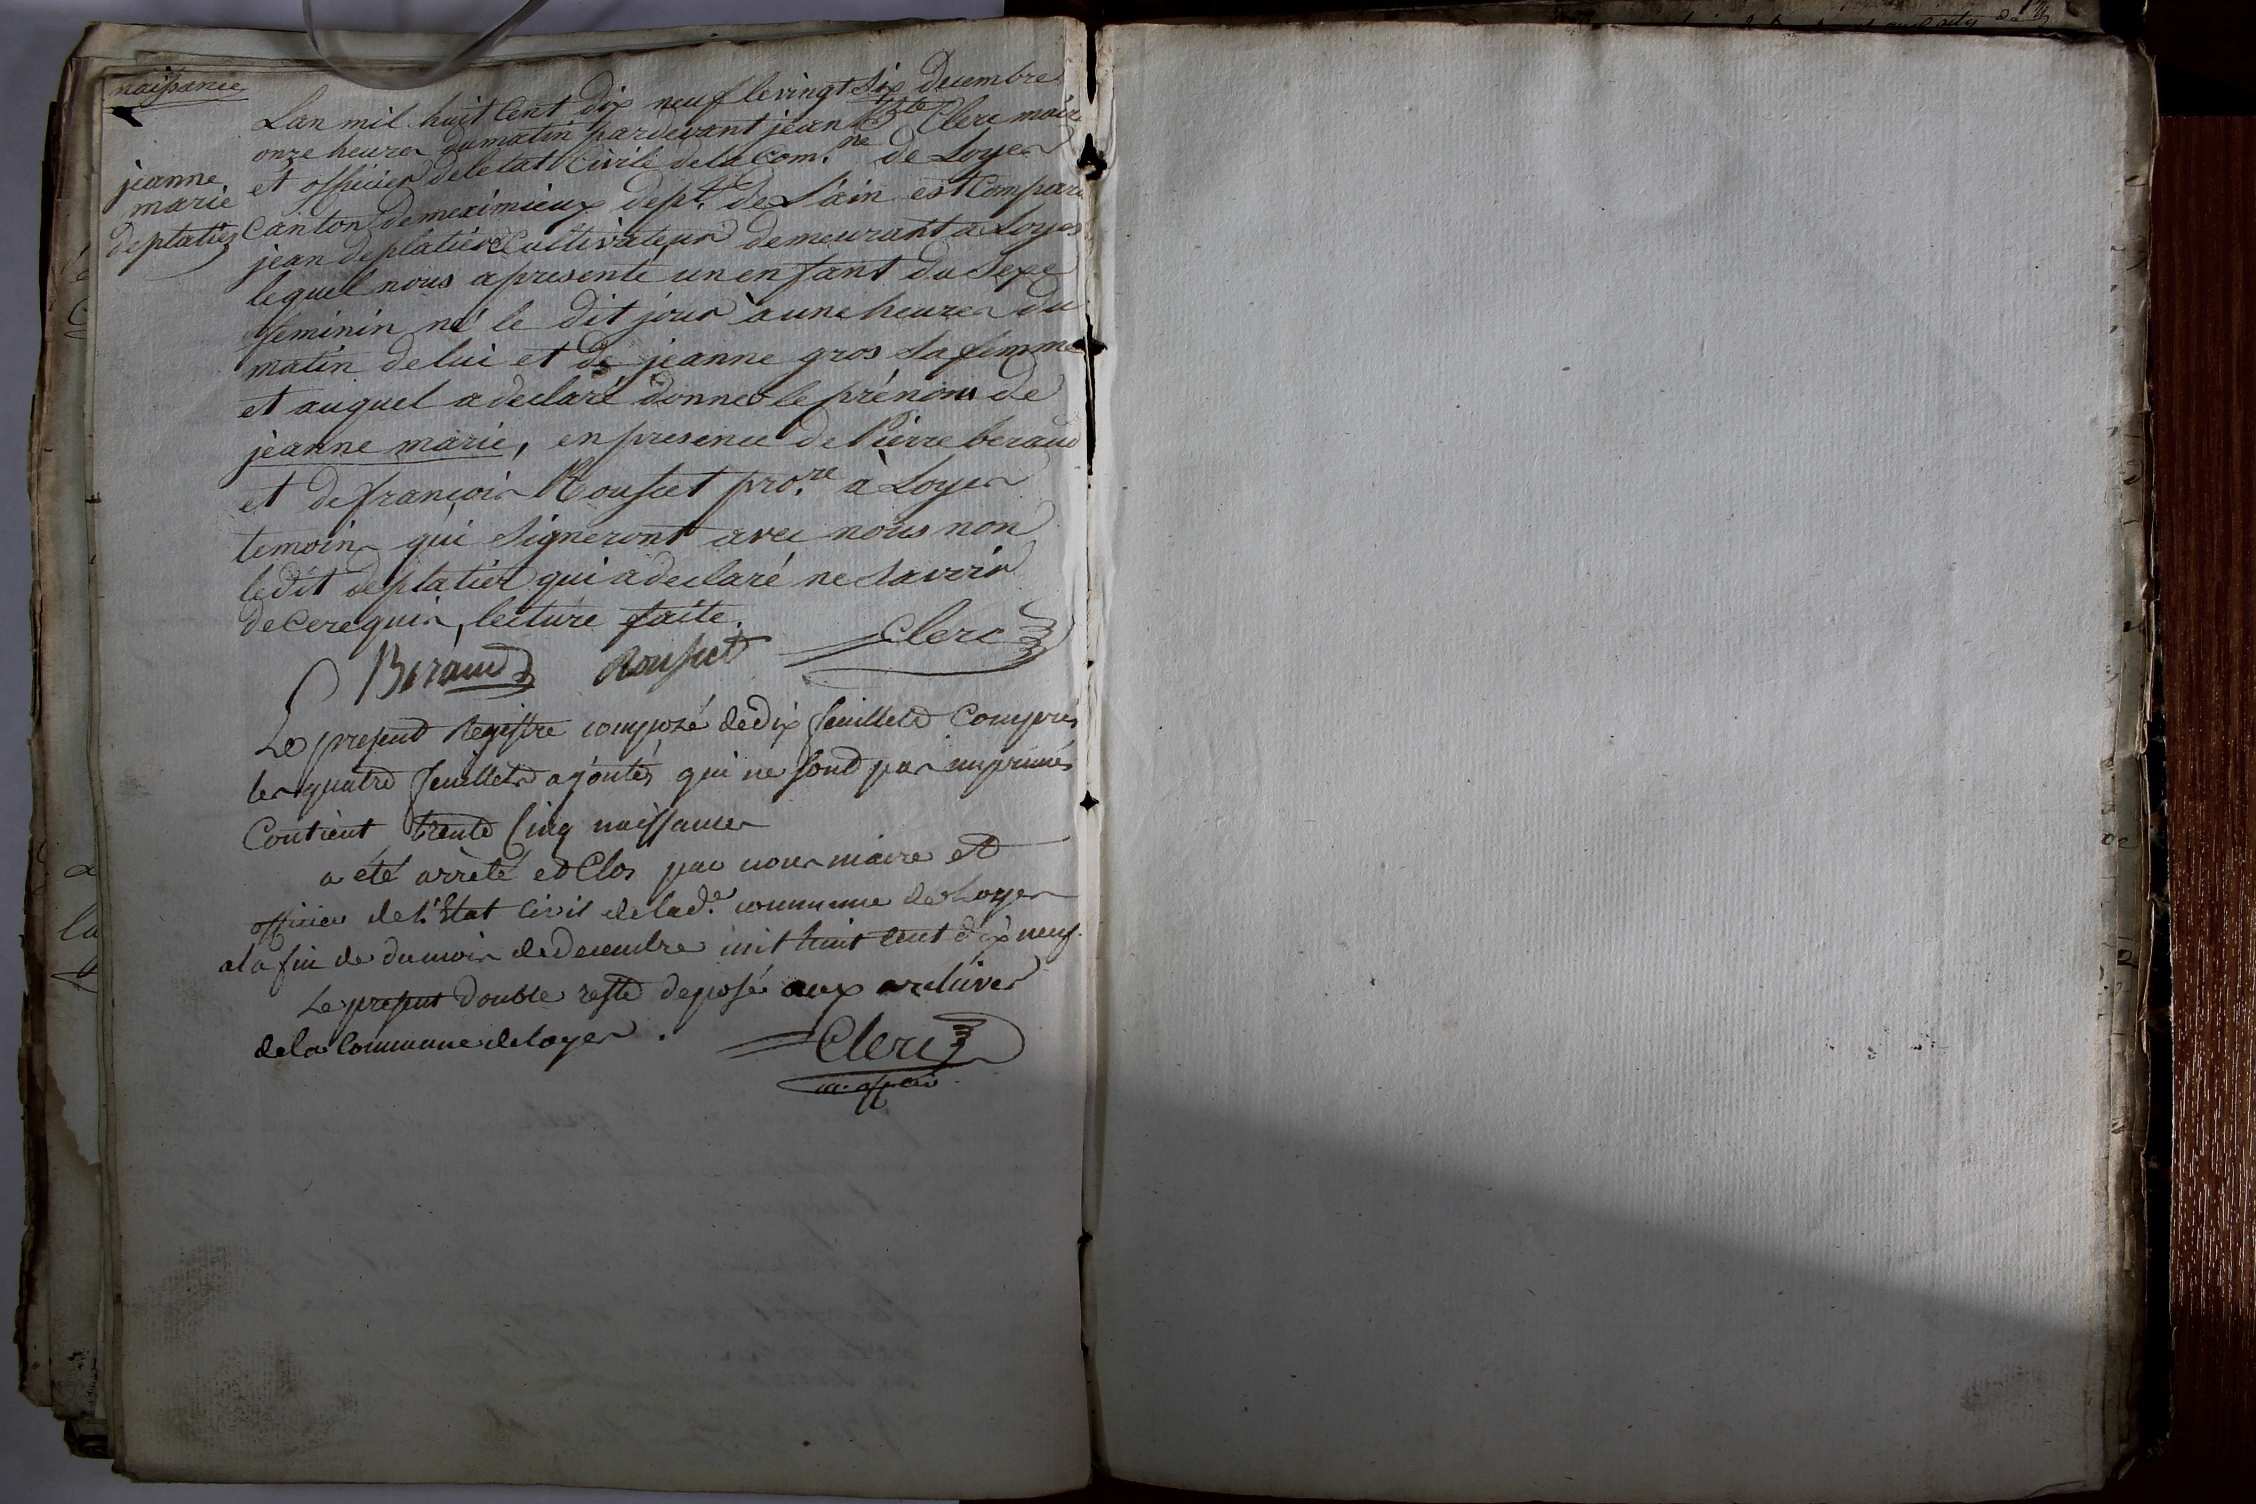 naissance
jeanne
marie
deplatiez
Lan mil huit Cent dix neuf le vingt six decembre
onze heures du matin pardevant jean Bte Clerc maire
et officier de letat Civile de la Com.ne de Loyes
Canton de meximieux dept. de L'ain est Comparu
jean deplatiere Cultivateur demeurant a Loyes
lequel nous a presenté un enfant du Sexe
feminin né le dit jour à une heures du
matin de lui et de jeanne gros sa femme
et auquel a declaré donner le prénom de
jeanne marie, en presence de Pierre beraud
et de françois Rousset pro.re à Loyes
temoins qui signeront avec nous non
ledit deplatier qui a declaré ne savoir
de ce requis, lecture faite.
Béraud Rousset Clerc
Le present Registre composé de dix feuillets Compris
les quatre feuillets ajoutés qui ne sont pas imprimés
Contient trente Cinq naissances
a été arrêté et Clos par nous maire et
officier de l'Etat Civil de lad.e commune de Loyes
a la fin de du mois de decembre mil huit cent dix neuf.
Le present double reste deposé aux archives
de la Commune de loyes.
Clerc